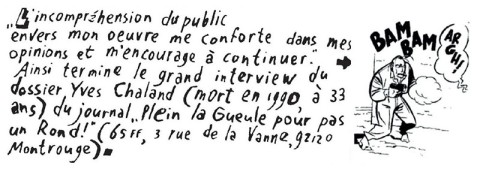 „L'incompréhension du public
envers mon oeuvre me conforte dans mes
opinions et m'encourage à continuer."
Ainsi termine le grand interview du
dossier Yves Chaland (mort en 1990, à 33
ans) du journal „Plein la Gueule pour pas
un Rond!" (65FF, 3 rue de la Vanne, 92120
Montrouge).
BAM
BAM
AR
GH!